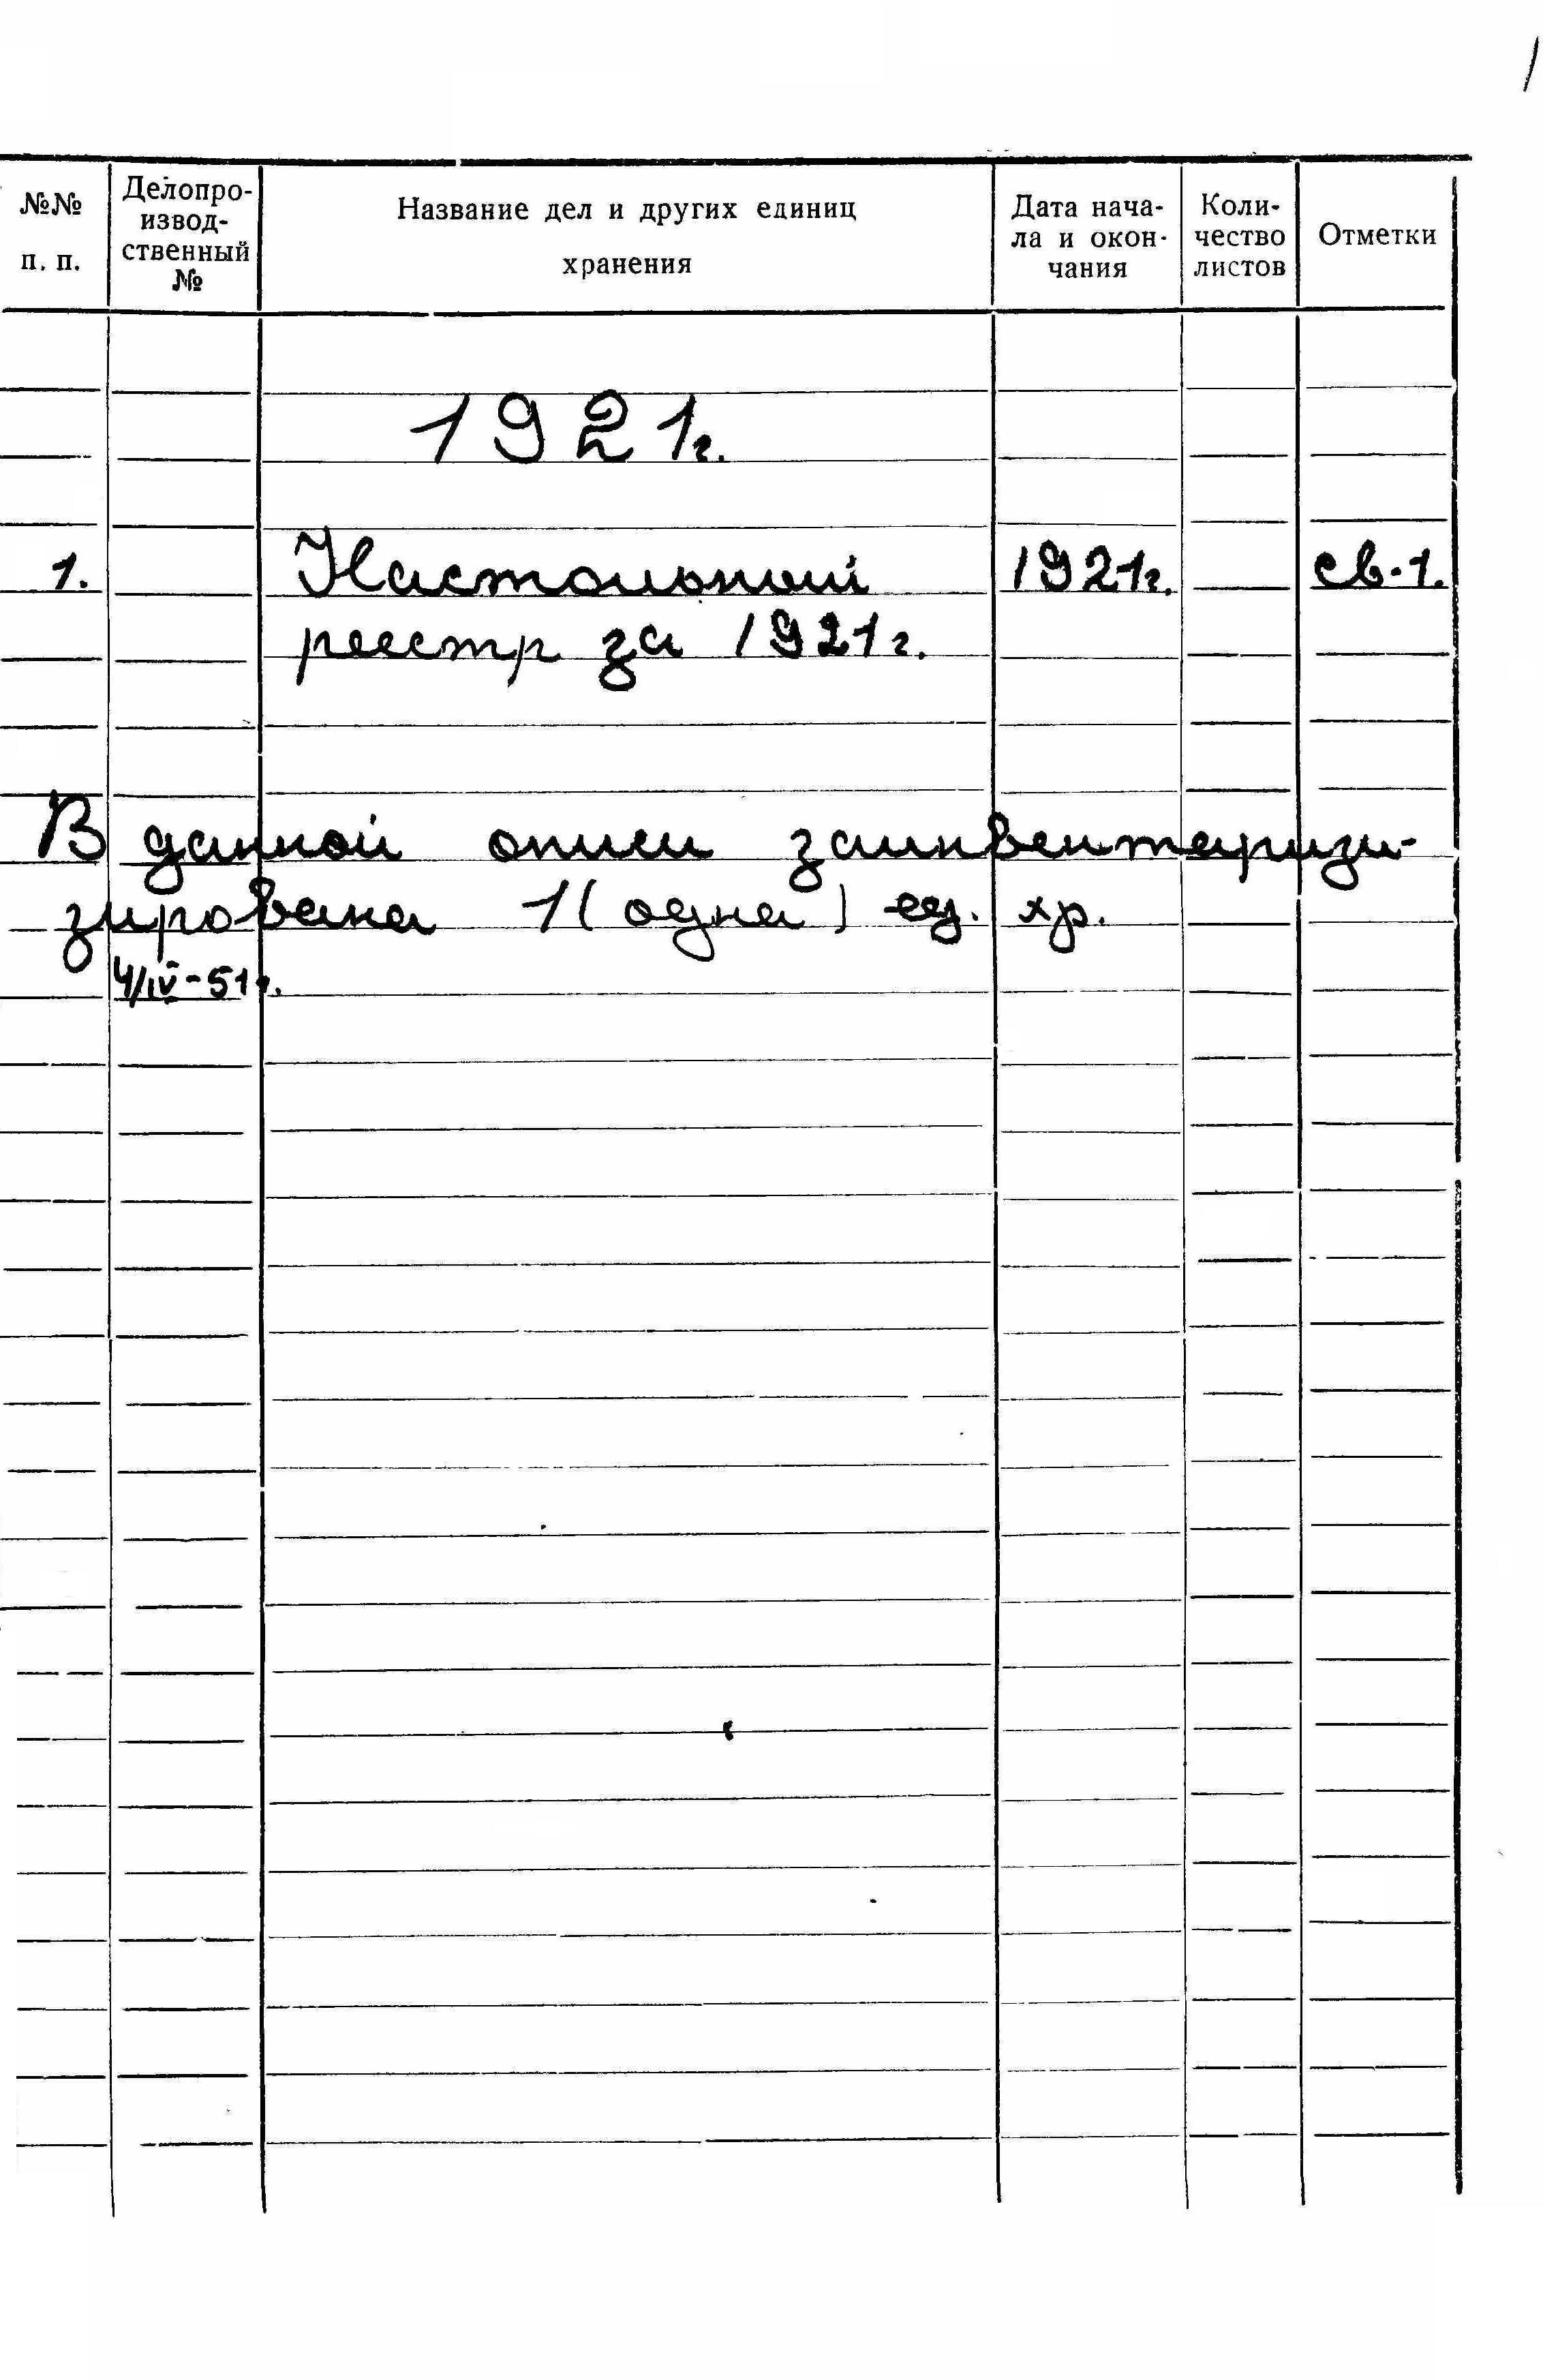 1
№№ п. п.
Делопро-
извод-
ственный
№
Название дел и других единиц
хранения
Дата нача-
ла и окон-
чания
Коли-
чество
листов
Отметки
1921г.
1. Настольный 1921г. св-1.
реестр за 1921г.
В данной описи заинвентаризи-
зирована 1 (одна) ед. хр.
4/IV-51г.